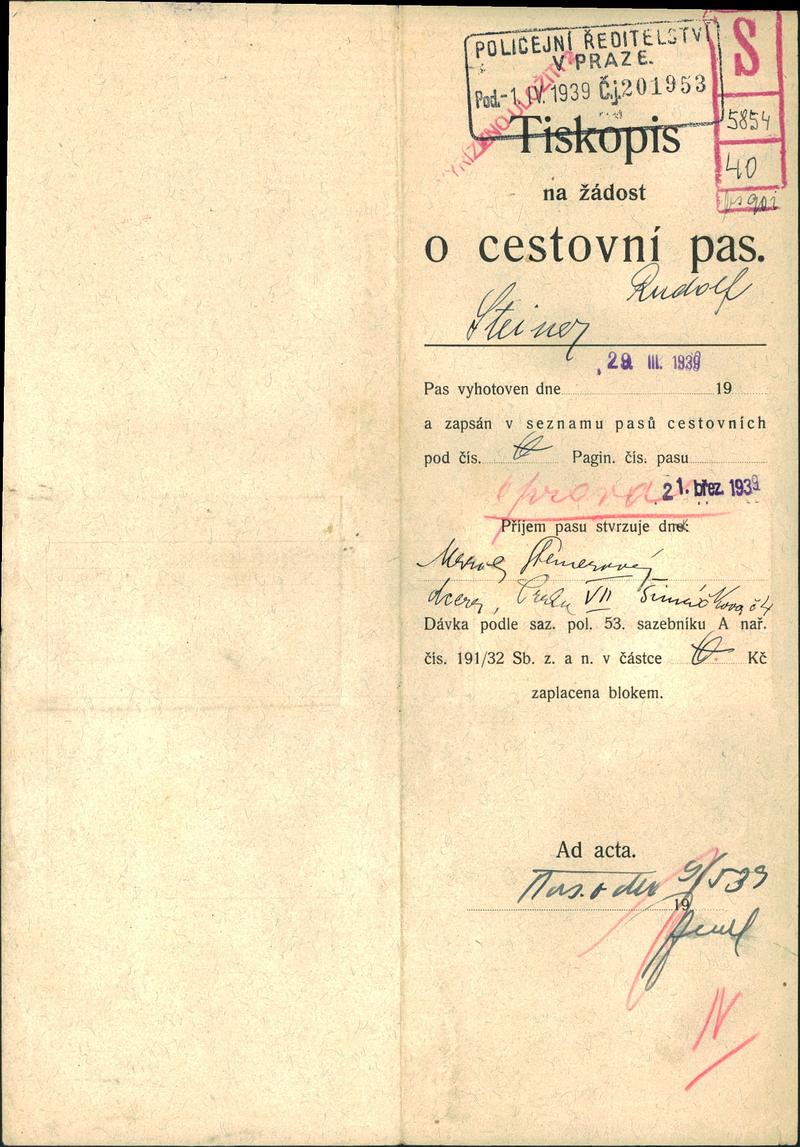 POLICEJNÍ ŘEDITELSTVÍ
V PRAZE.
Pod. - 1. IV. 1939 Č.j. 201953
VYŘÍZENO ULOŽITI
S
5854
40
Tiskopis
na žádost
o cestovní pas.
Rudolf
Steiner
29 III. 1939
Pas vyhotoven dne 19
a zapsán v seznamu pasů cestovních
pod čís. Pagin. čís. pasu
21. břez. 1939
Příjem pasu stvrzuje dne:
dcera, Praha VII Šimáčkova č 4
Dávka podle saz. pol. 53. sazebníku A nař.
čís. 191/32 Sb. z. a n. v částce Kč
zaplacena blokem.
Ad acta.
9/5 39
19
N